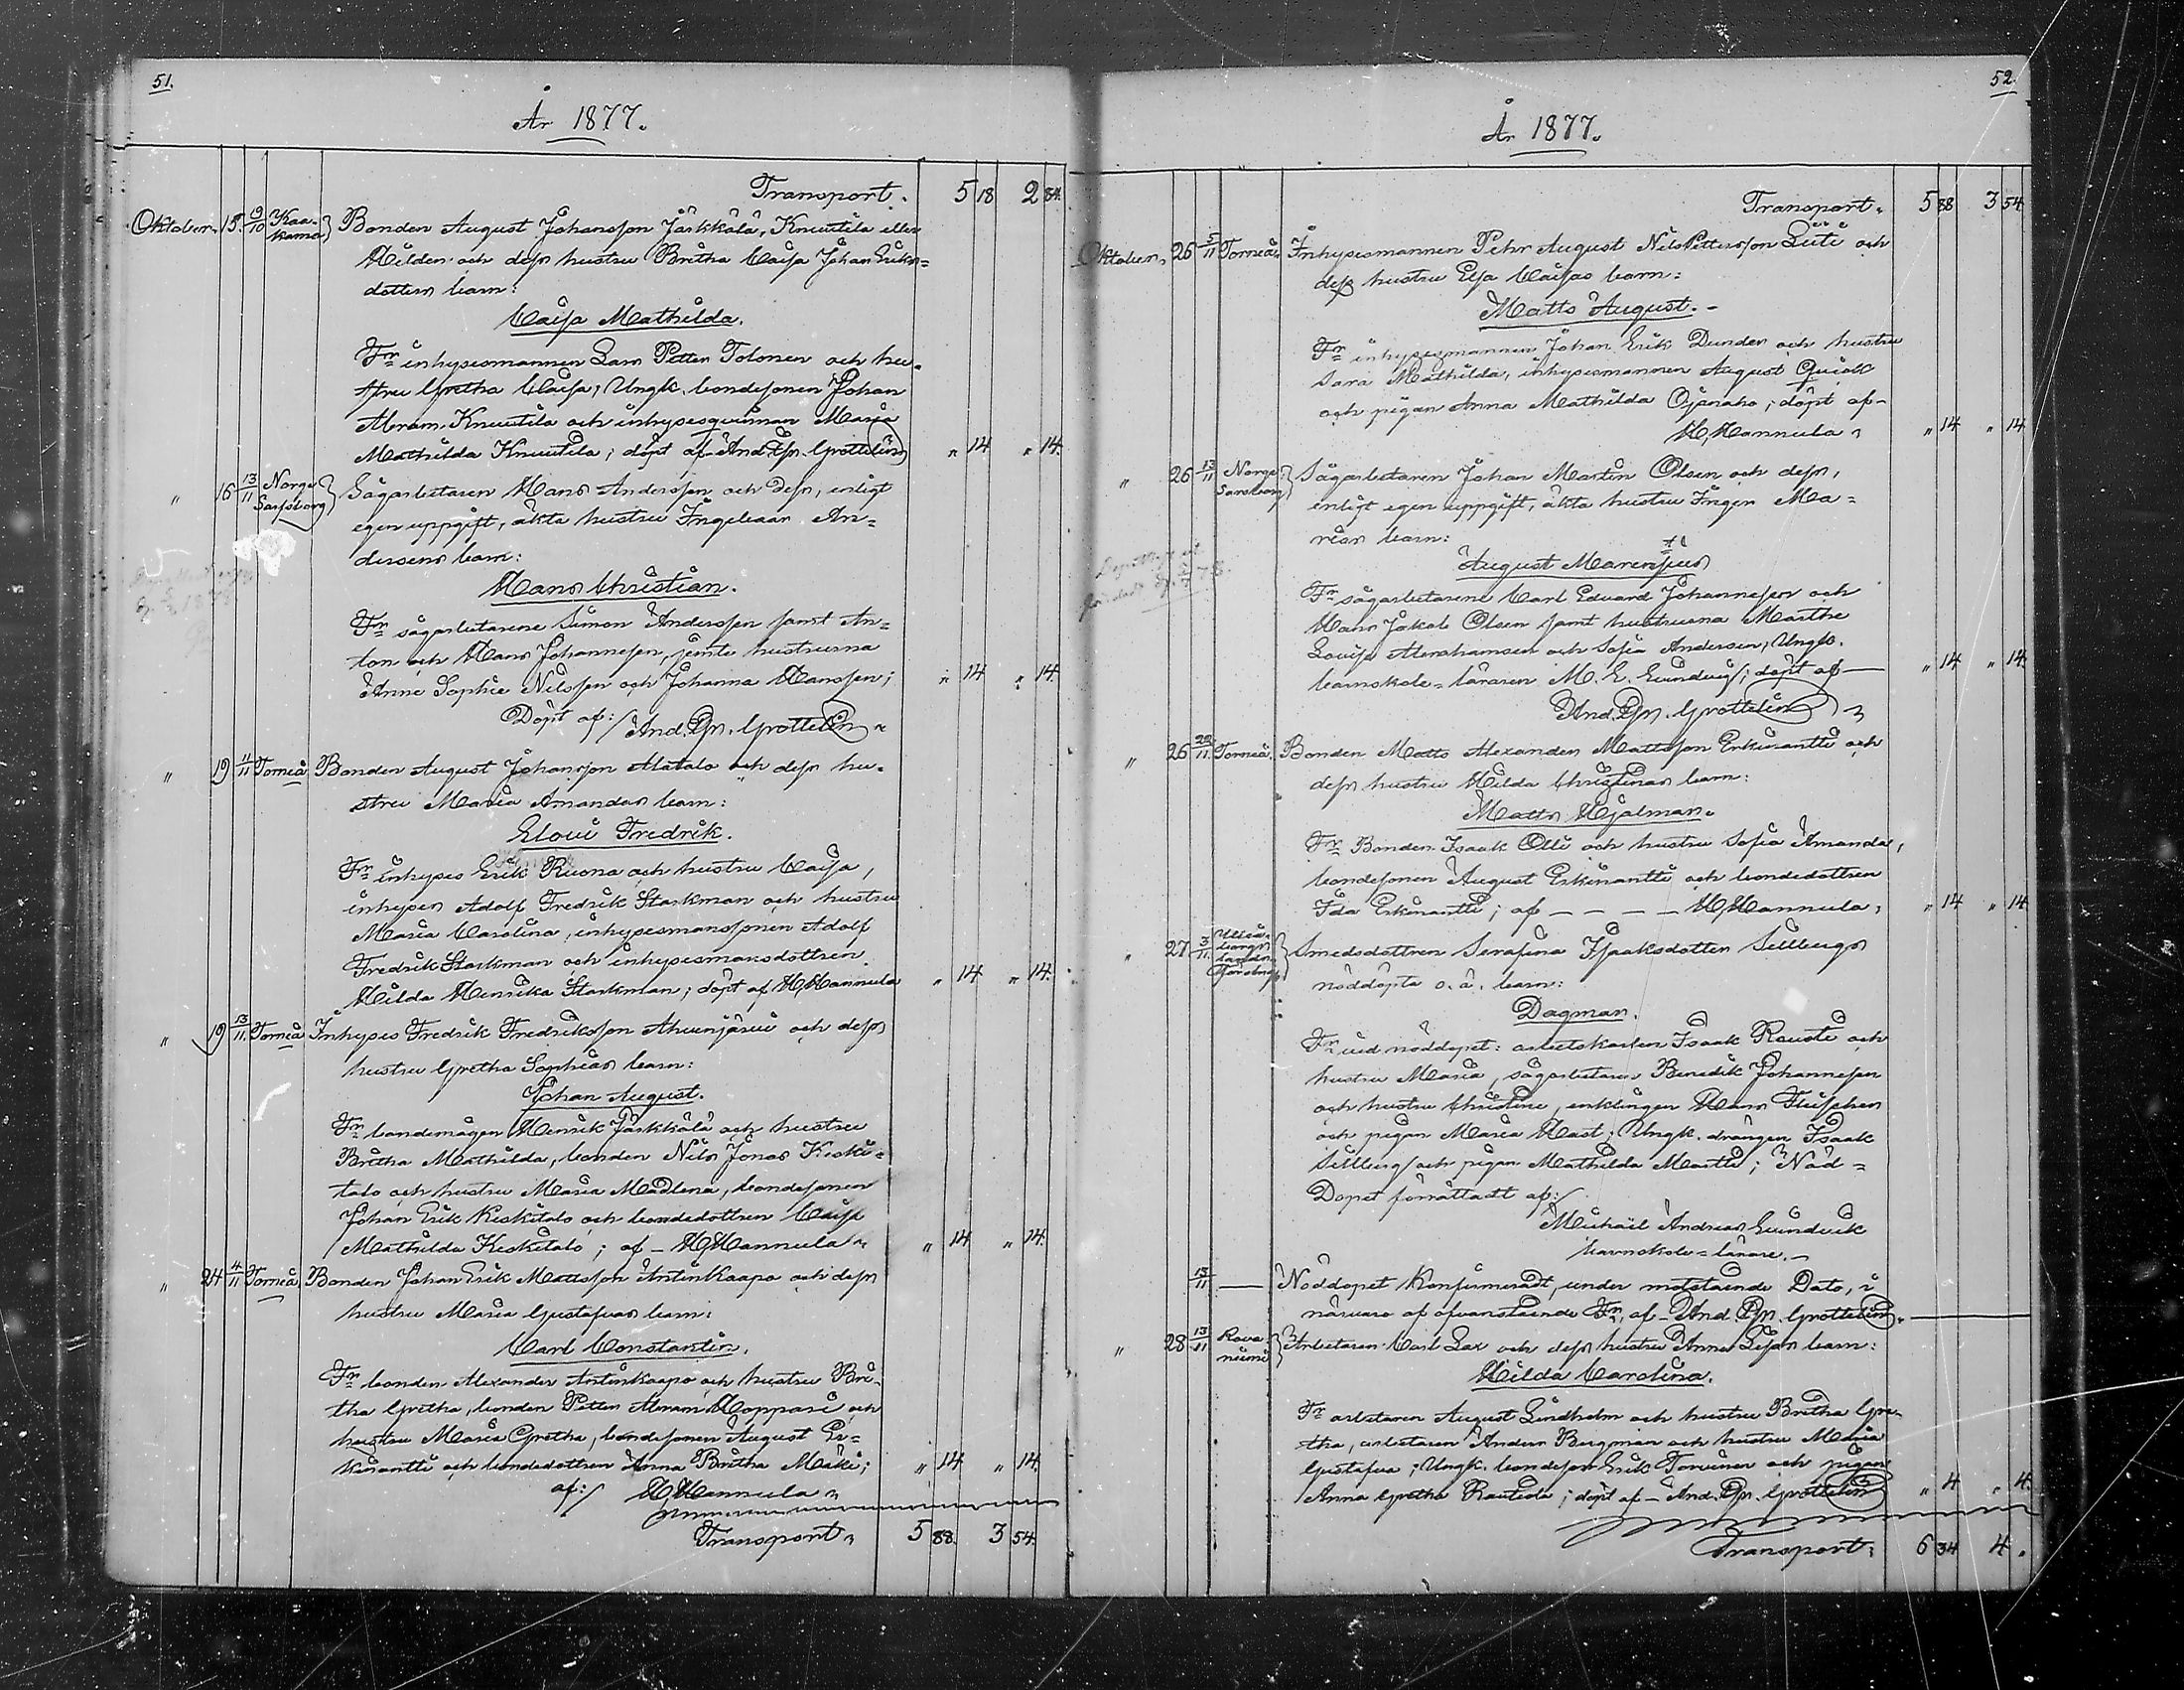 51.
År 1877.
Transport. 5 18 2 84.
Oktober. 15. 9/10 Kaa-
kama
Bonden August Johansson Järkkälä, Knuutila eller
Hilden och dess hustru Britha Caisa Johan Eriks=
dotters barn:
Caisa Mathilda.
Fr inhysesmannen Lars Petter Tolonen och hu-
stru Gretha Caisa, Ungk. bondesonen Johan
Abram Knuutila och inhysesqvinnan Maria
Mathilda Knuutila; döpt af And. Joh. Grottelin „ 14 „ 14.
„ 16 13/11 Norge
Sarpsborg
Sågarbetaren Hans Anderssen och dess, enligt
egen uppgift, äkta hustru Ingebaar An=
dersens barn:
Hans Christian.
Fr sågarbetarene Simon Anderssen samt An=
ton och Hans Johannesen, jemte hustrurna
Anne Sophie Nilssen och Johanna Hanssen; „ 14 „ 14.
Döpt af:/ And. Joh. Grottelin
„ 19 4/11 Torneå
Bonden August Johansson Alatalo och dess hu-
stru Maria Amandas barn:
Elovi Fredrik.
Fr inhyses Erik Ruona och hustru Caisa,
inhyses Adolf Fredrik Starkman och hustru
Maria Carolina, inhysesmanssonen Adolf
Fredrik Starkman och inhysesmansdottren
Hilda Henrika Starkman; döpt af H. Hannula „ 14 „ 14.
„ 19 13/11. Torneå
Inhyses Fredrik Fredriksson Ahvenjärvi och dess
hustru Gretha Sophias barn:
Johan August.
Fr bondemågen Henrik Järkkälä och hustru
Britha Mathilda, bonden Nils Jonas Keski=
talo och hustru Maria Madlena, bondesonen
Johan Erik Keskitalo och bondedottren Caisa
Mathilda Keskitalo; af – H. Hannula „ 14 „ 14.
„ 24 4/11 Torneå
Bonden Johan Erik Mattsson Antinkaapo och dess
hustru Maria Gustafvas barn:
Carl Constantin.
Fr bonden Alexander Antinkaapo och hustru Bri-
tha Gretha, bonden Petter Abram Koppari och
hustru Maria Gretha, bondesonen August Er=
kinantti och bondedottren Anna Britha Mäki; „ 14 „ 14.
af:/ H. Hannula
Transport 5 88. 3 54.
52.
År 1877.
Transport. 5 88 3 54.
Oktober. 26 5/11 Torneå
Inhysesmannen Pehr August Nils Pettersson Liiti och
dess hustru Elsa Caisas barn:
Matts August.
Fr inhysesmannen Johan Erik Dunder och hustru
Sara Mathilda, inhysesmannen August Qvick
och pigan Anna Mathilda Ojanaho; döpt af
H. Hannula „ 14 „ 14
„ 26 13/11 Norge
Sarsborg
Sågarbetaren Johan Martin Olsen och dess,
enligt egen uppgift, äkta hustru Inger Ma=
rias barn:
August
Fr sågarbetarene Carl Edvard Johannesen och
Hans Jakob Olsen samt hustrurna Marthe
Lovise Abrahamsen och Sofia Andersen, Ungk.
barnskole=läraren M. E. ; döpt af „ 14 „ 14.
And. Joh. Grottelin
„ 26 22/11. Torneå.
Bonden Matts Alexander Mattsson Erkinantti och
dess hustru Hilda Christinas barn:
Matts Hjalmar.
Fr Bonden Isaak Olli och hustru Sofia Amanda,
bondesonen August Erkinantti och bondedottren
Ida Erkinantti; af – – – – H. Hannula „ 14 „ 14
„ 27 3/11.
Smedsdottren Serafina Isaaksdotter Sellbergs
nöddöpta o. ä. barn:
Dagmar.
Fr vid nöddopet: arbetskarlen Isaak Rousti och
hustru Maria, sågarbetaren Benedik Johannesen
och hustru Christine, enklingen Hans
och pigan Maria Mast; Ungk. drängen Isaak
Sellberg och pigan Mathilda Martti; Nöd=
Dopet förrättadt af:/
Michaël Andreas
barnskole=lärare.
13/11 Nöddopet konfirmeradt, under motstående Dato, i
närvaro af ofvanstående Fr, af – And. Joh. Grottelin.
„ 28 13/11 Rova
niemi
Arbetaren Carl Lax och dess hustru Anna Lisas barn:
Hilda Carolina.
Fr arbetaren August Lindholm och hustru Britha Gre-
tha, arbetaren Anders Bergman och hustru Maria
Gustafva; Ungk. bondeson Erik Torvinen och pigan
Anna Gretha Rautiola; döpt af – And. Joh. Grottelin „ 4 „ 4.
Transport. 6 34 4 „